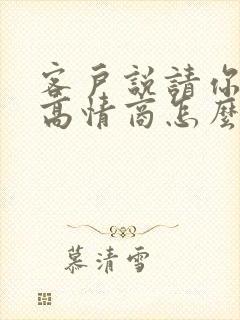 客戶說請你
高情商怎麼
慕清雪